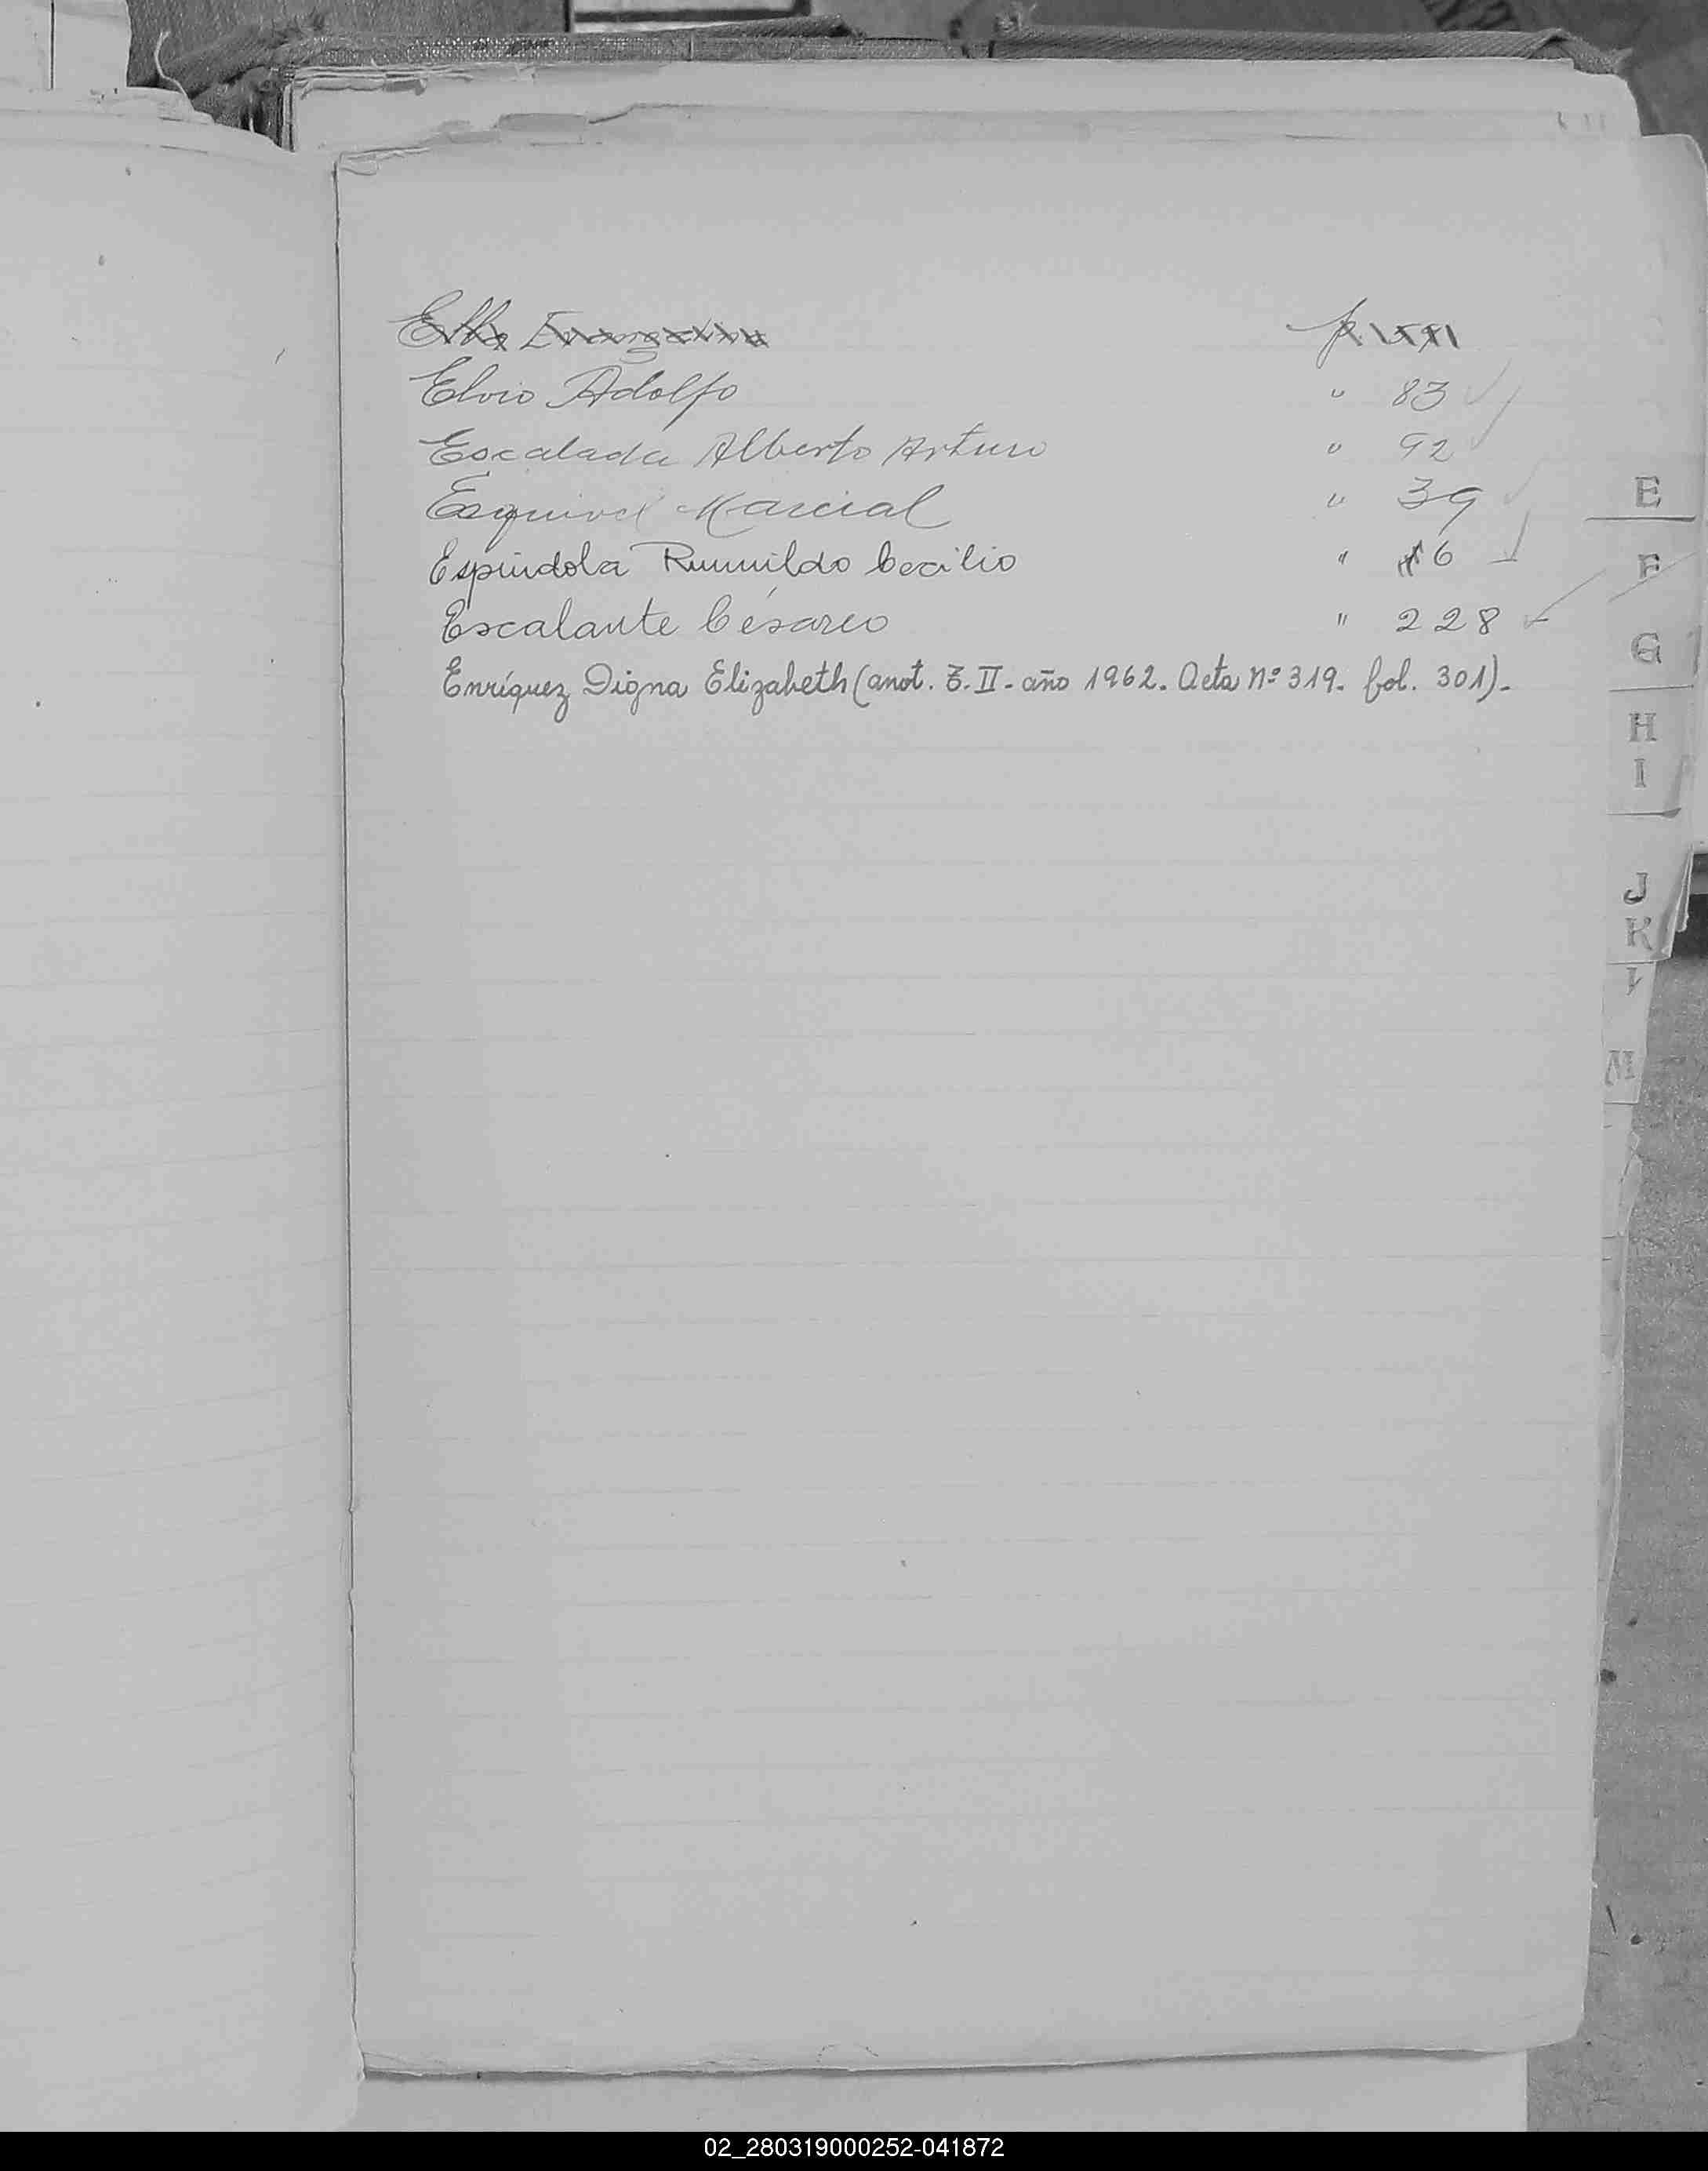 Elvio Adolfo " 83
Escalada Alberto Arturo " 92
Esquivel Marcial " 39
Espindola Rumildo Cecilio " 6
Escalante Césareo " 228
Enríquez Digna Elizabeth (anot. T. II - año 1962. Acta Nº 319. fol. 301).-
E
F
G
H
I
J
K
L
M
02_280319000252-041872